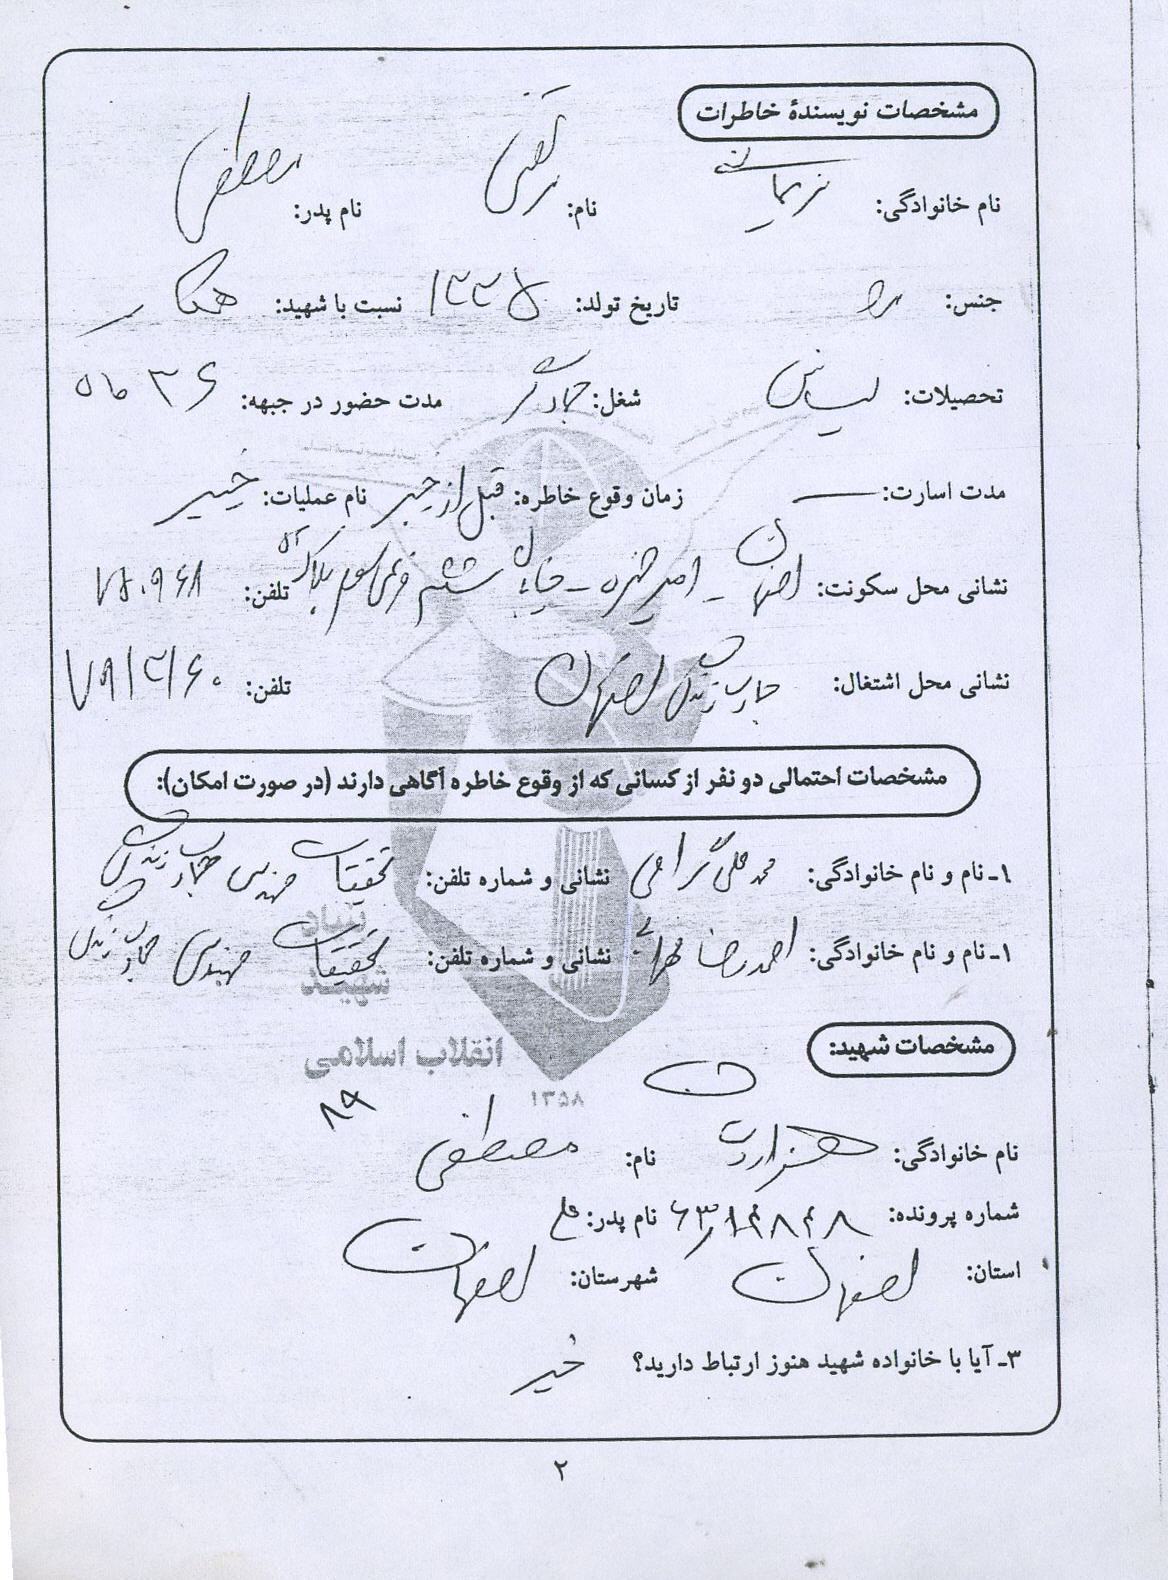 مشخصات نویسندهٔ خاطرات
نام خانوادگی: نریمانی نام: مرتضی نام پدر: مصطفی
جنس: مرد تاریخ تولد: ۱۳۳۵ نسبت با شهید: همکار
تحصیلات: لیسانس شغل: جهادگر مدت حضور در جبهه: ۳۶ ماه
مدت اسارت: — زمان وقوع خاطره: قبل از خیبر نام عملیات: خیبر
نشانی محل سکونت: اصفهان - امیر حمزه - خیابان ششم فرعی سوم پلاک تلفن: ۷۵۰۹۶۸
نشانی محل اشتغال: جهاد سازندگی اصفهان تلفن: ۷۹۱۳۱۶۰
مشخصات احتمالی دو نفر از کسانی که از وقوع خاطره آگاهی دارند (در صورت امکان):
۱ـ نام و نام خانوادگی: محمد علی گرامی نشانی و شماره تلفن: تحقیقات مهندسی جهاد سازندگی
۱ـ نام و نام خانوادگی: احمدرضا نشانی و شماره تلفن: تحقیقات مهندسی جهاد سازندگی
بنیاد
شهید
انقلاب اسلامی
۱۳۵۸
مشخصات شهید:
۸۹
نام خانوادگی: هزاردستان نام: مصطفی
شماره پرونده: نام پدر: علی
استان: اصفهان شهرستان: اصفهان
۳ـ آیا با خانواده شهید هنوز ارتباط دارید؟ خیر
۲